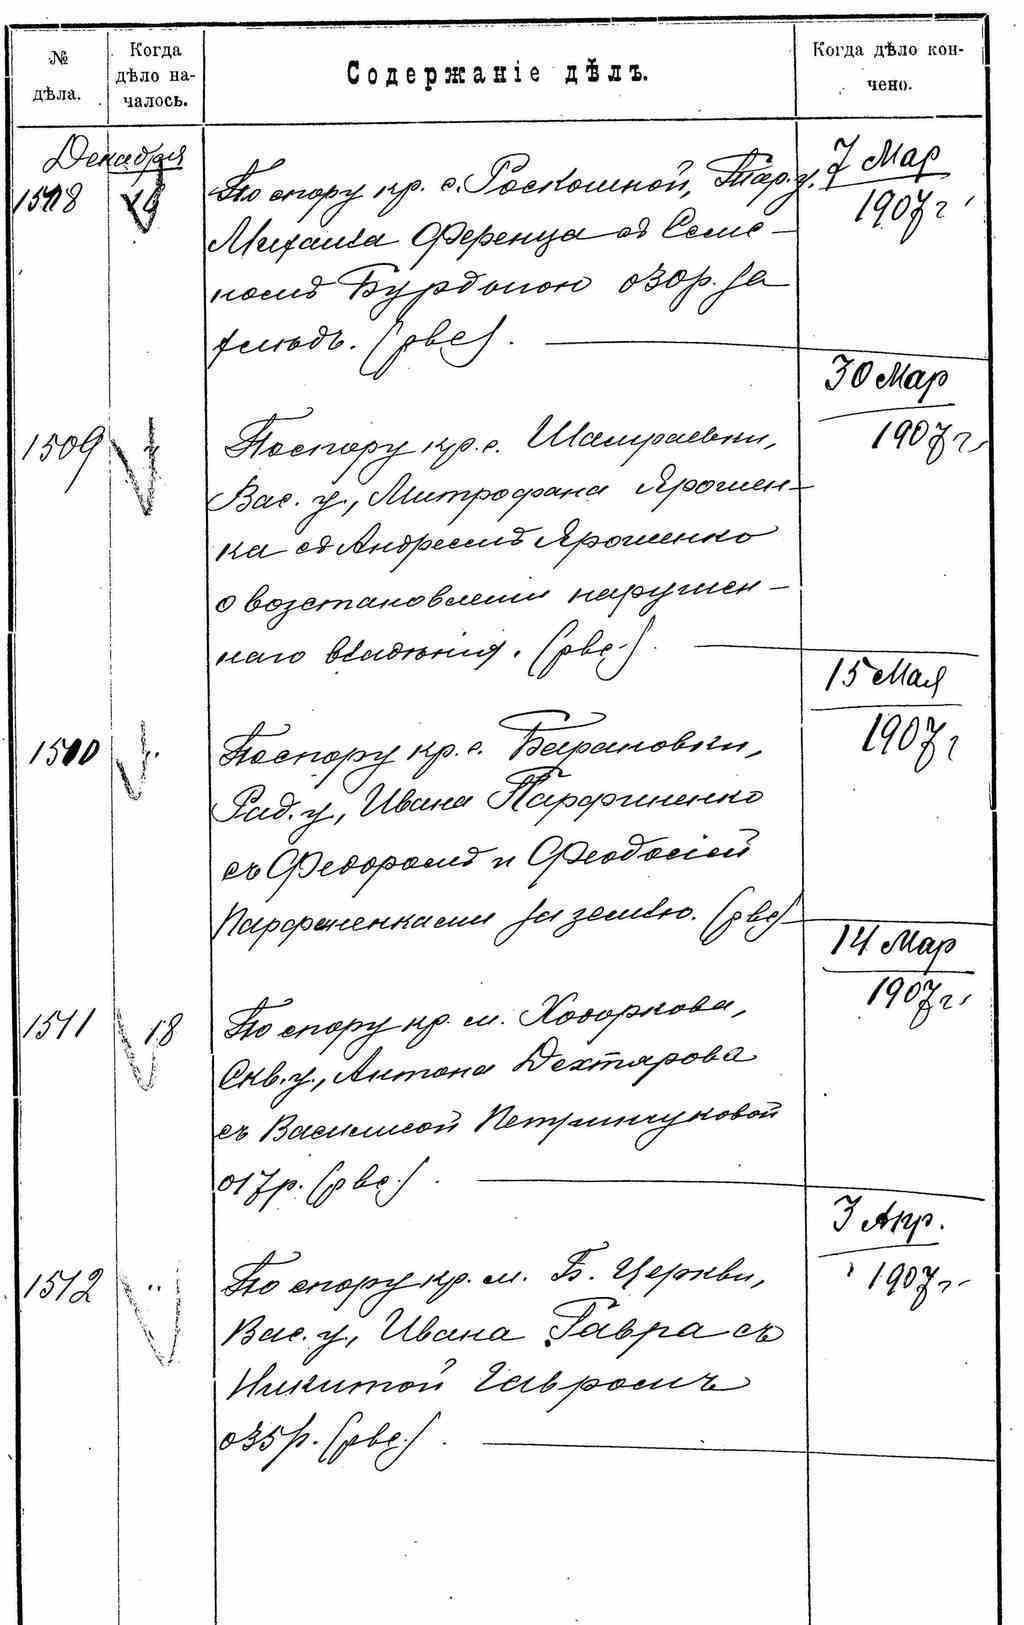 № дѣла.
Когда дѣло началось.
Содержаніе дѣлъ.
Когда дѣло кончено.
Декабря
1508
По спору кр. с. Роскошной, Тар. у.
7 Мар
1907 г
Михаила Ференца съ Семе-
номъ о 30 р. за
(рвс).
30 Мар
1907 г.
1509
По спору кр. с. Шамраевки,
Вас. у., Митрофана Ярошен-
ка съ Андреемъ Ярошенко
о возстановленіи нарушен-
наго владѣнія. (рвс.).
15 Мая
1907 г
1510
По спору кр. с. Барановки,
Рад. у., Ивана Парфиненко
съ Федоромъ и Феодосіей
Парфиненками за землю. (рвс)
14 Мар
1907 г.
1511
18
По спору кр. м. Ходоркова,
Скв. у., Антона Дехтярова
съ Василисой Петринчуковой
о 17 р. (рвс.).
3 Апр.
1907 г.
1512
"
По спору кр. м. Б. Церкви,
Вас. у., Ивана Гавра съ
Никитой Гавромъ
о 35 р. (рвс.).